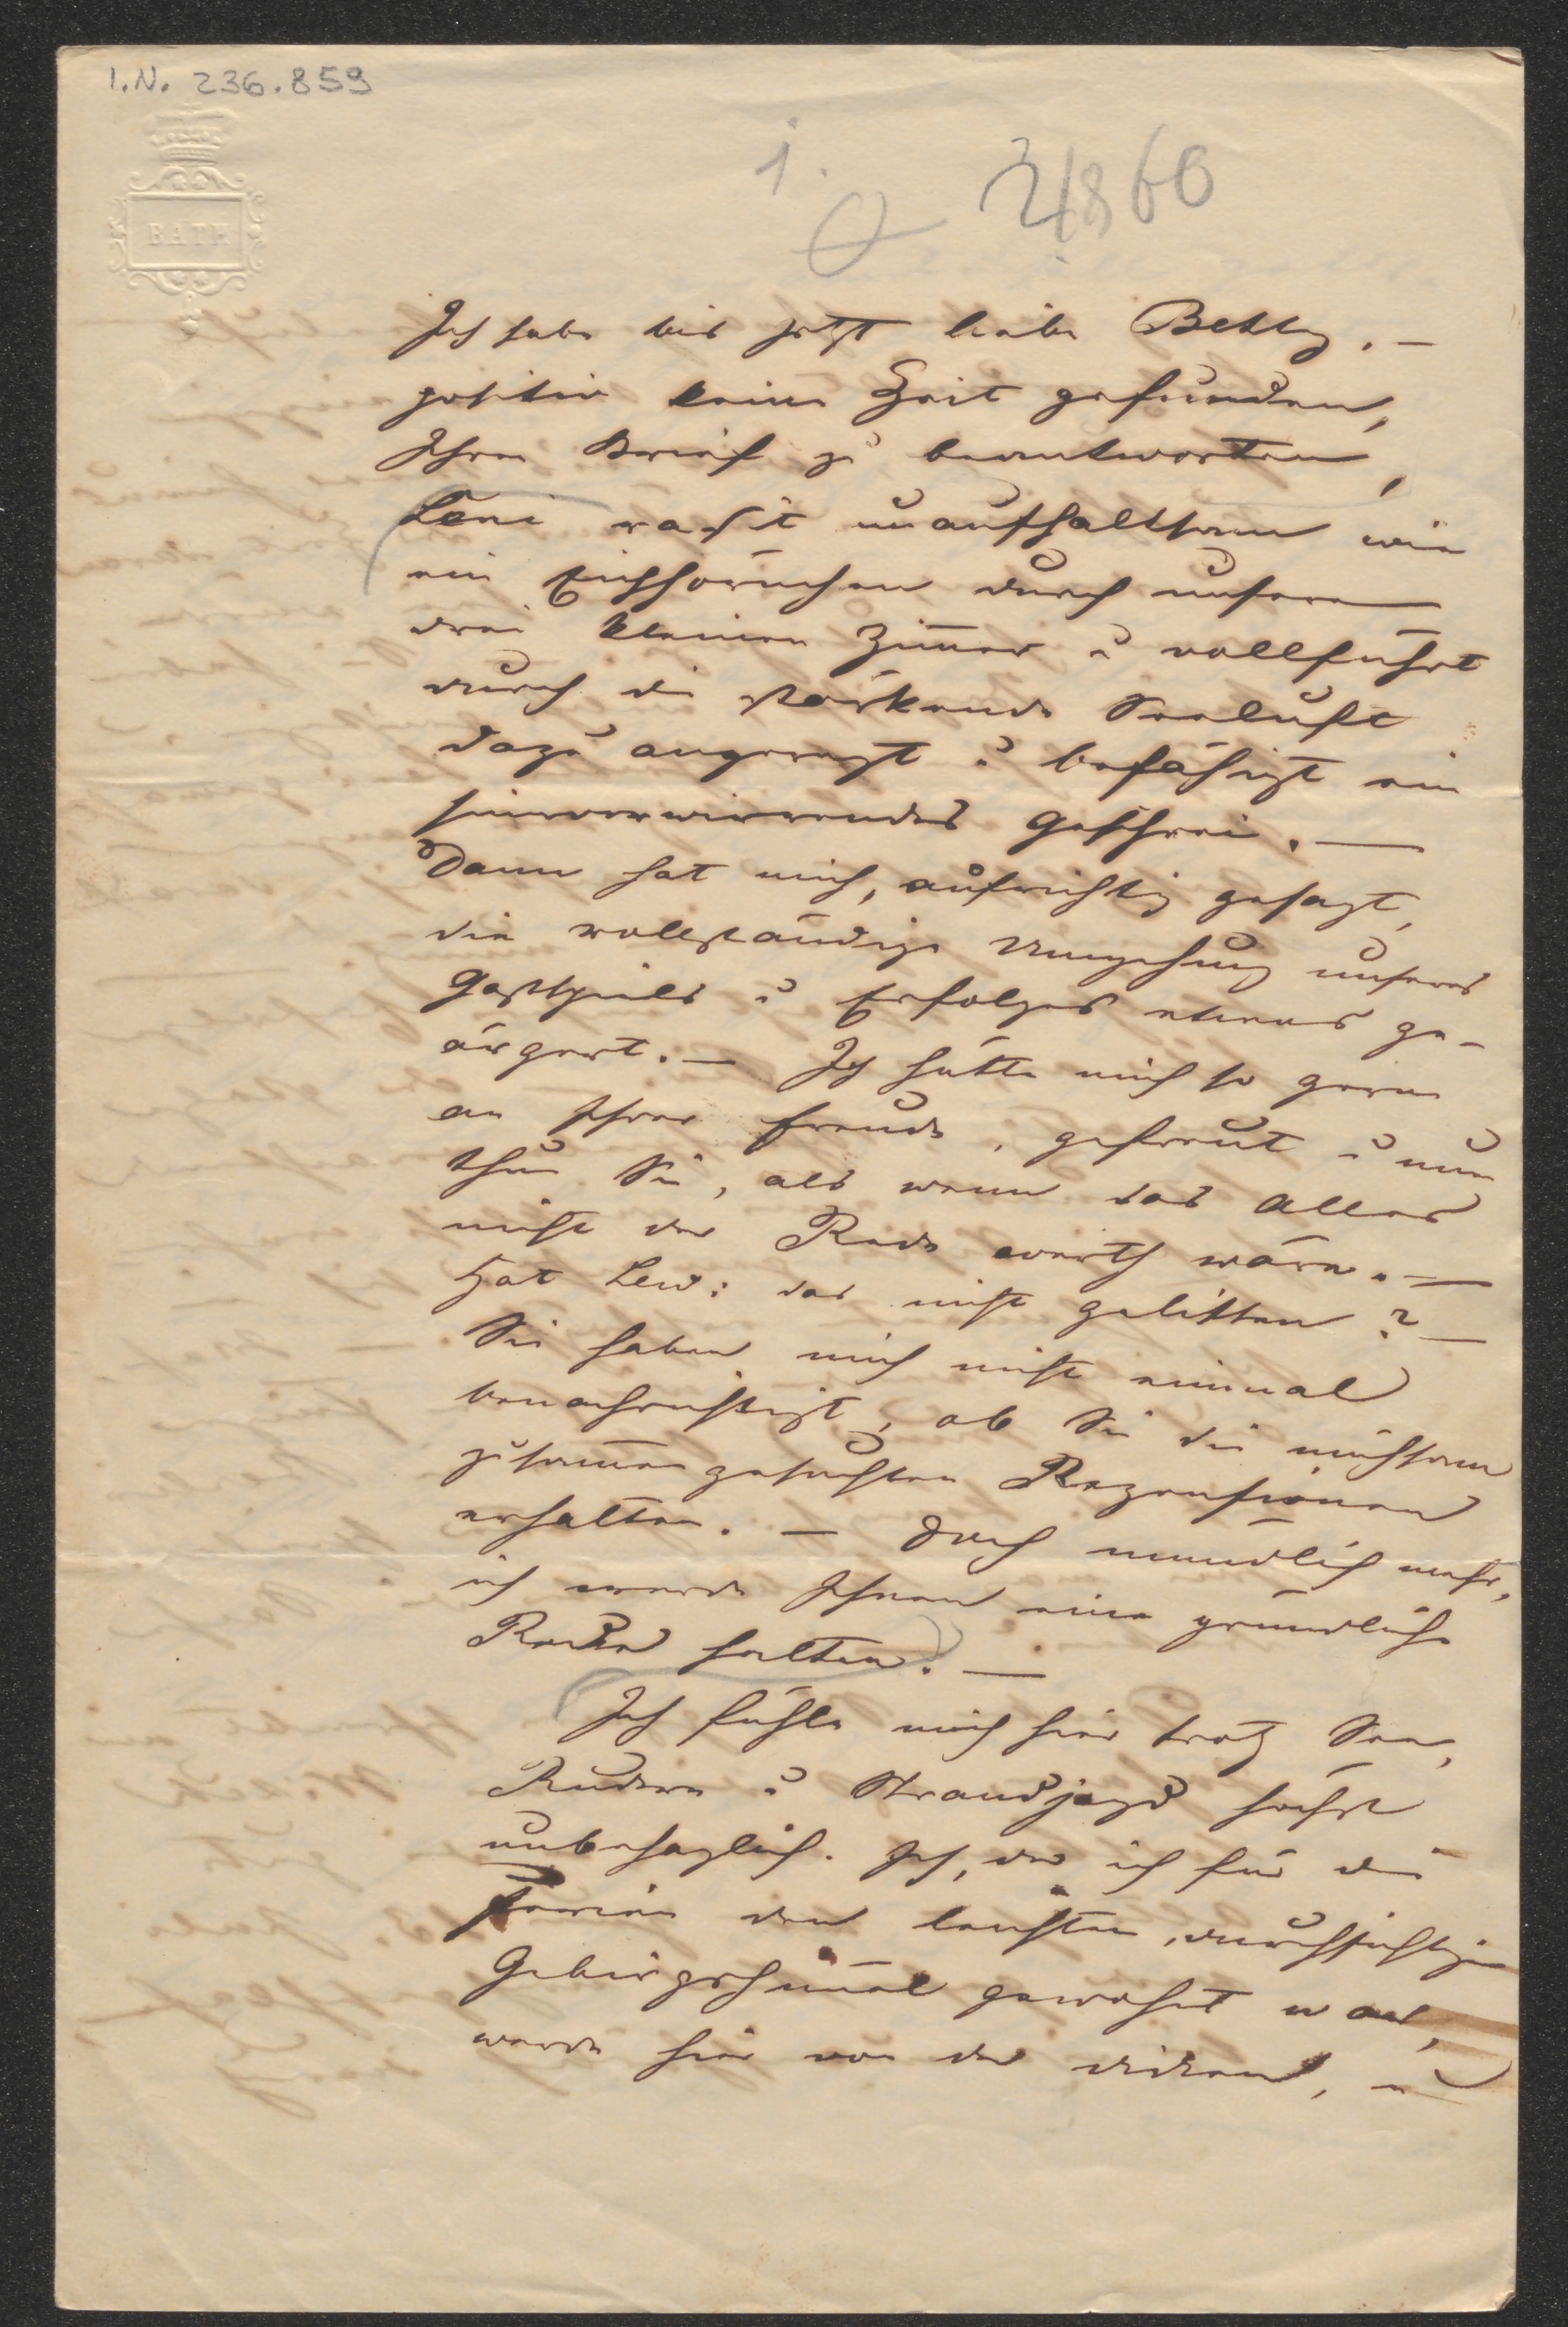 I.N. 236.859
BATH
1.
Ich habe bis jetzt liebe Betty. –
positiv keine Zeit gefunden,
Ihren Brief zu beantworten,
Leni rast unaufhaltsam wie
ein Eichhörnchen durch unsere
drei kleinen Zim̄er u vollführt
durch die stärkende Seeluft
dazu angeregt u befähigt ein
sinnverwirrendes Geschrei. –
Dann hat mich, aufrichtig gesagt,
die vollständige Umgehung unseres
Gastspiels u Erfolges etwas ge-
ärgert. – Ich hätte mich so gern
an Ihrer Freude, gefreut u nun
thun Sie, als wenn das Alles
nicht der Rede werth wäre. –
Hat Lew: das nicht gelitten? –
Sie haben mich nicht einmal
benachrichtigt, ob Sie die mühsam
zusam̄en gesuchten Rezensionen
erhalten. – Doch mündlich mehr,
ich werde Ihnen eine gründliche
Rede halten. –
Ich fühle mich hier trotz See,
Rudern u Strandjagd höchst
unbehaglich. Ich, der ich für die
Ferien den leichten, durchsichtigen
Gebirgshim̄el gewohnt war,
werde hier von der dicken, u